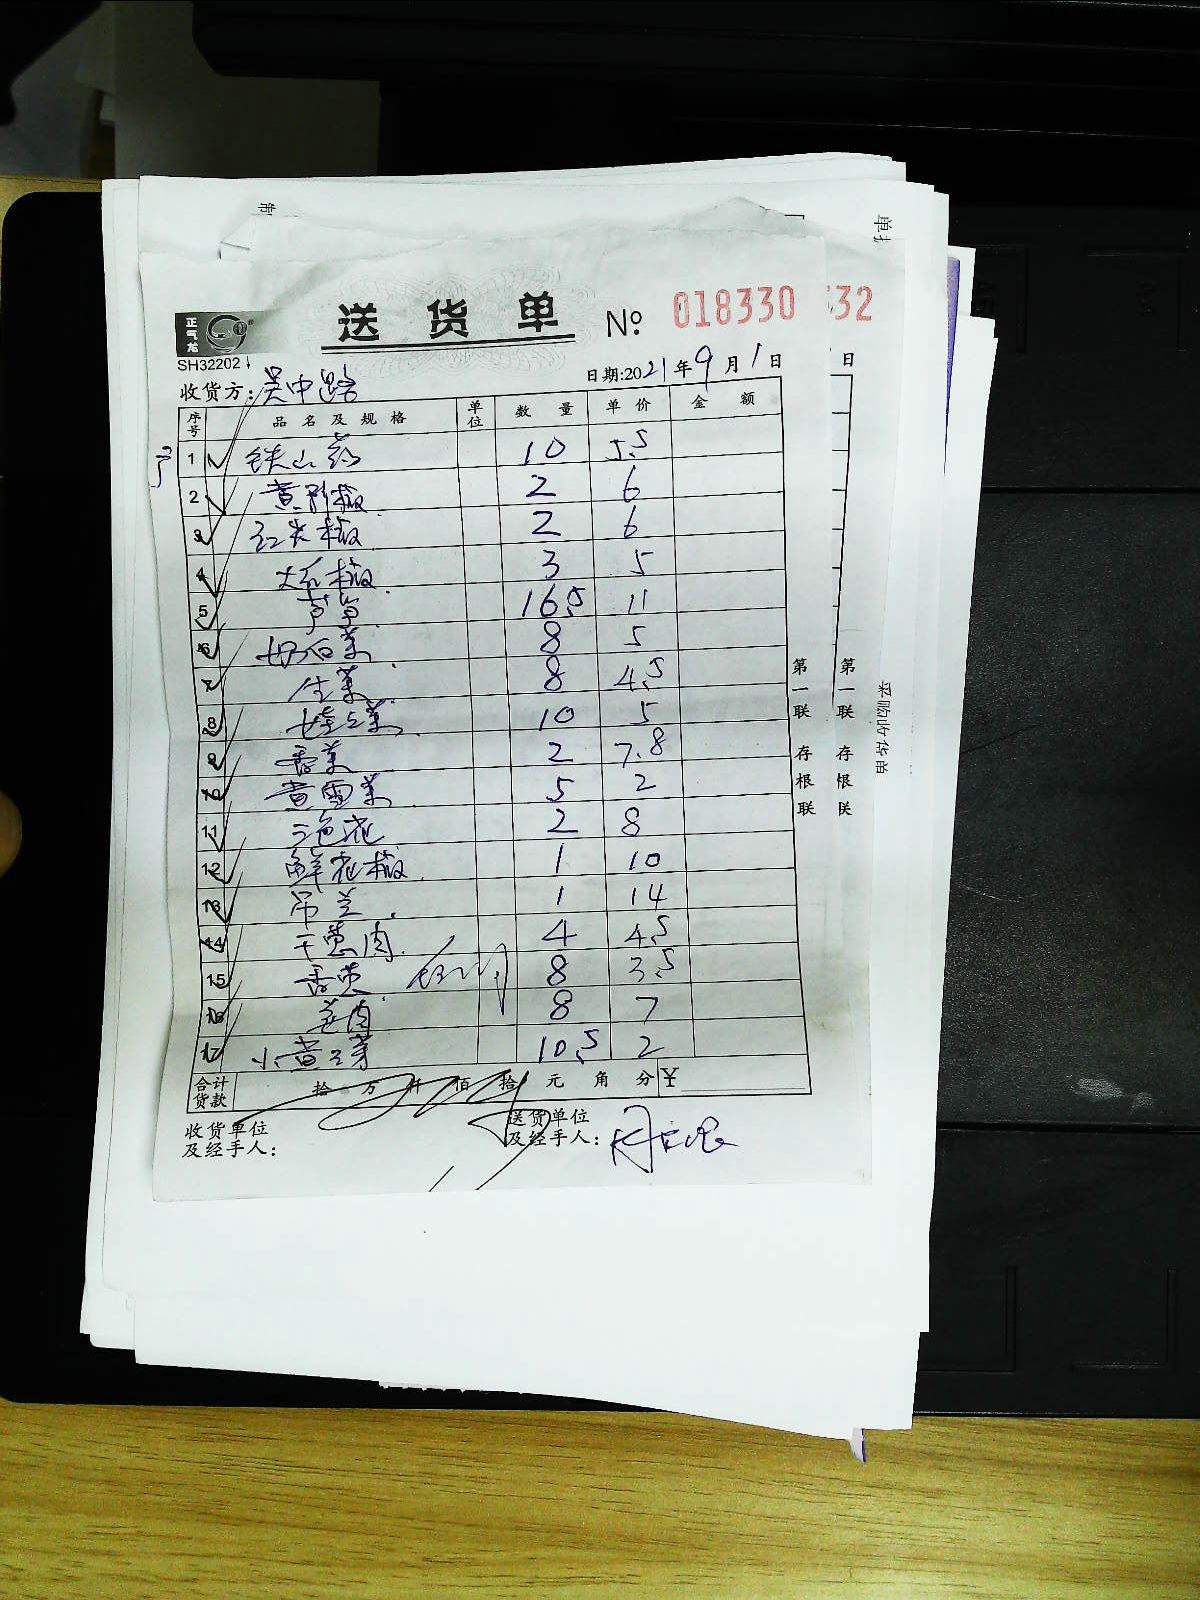 正气龙
SH32202
送货单 № 018330
32
收货方: 吴中路
日期:2021年9月1日
日
序号 品名及规格 单位 数量 单价 金额
1 铁山药 10 5.5
2 黄彩椒 2 6
3 红尖椒 2 6
4 大红椒 3 5
5 芦笋 16.5 11
6 奶白菜 8 5
7 生菜 8 4.5
8 娃娃菜 10 5
9 香菜 2 7.8
10 黄雪菜 5 2
11 三色花 2 8
12 鲜花椒 1 10
13 吊兰 1 14
14 干葱肉 4 4.5
15 香葱 8 3.5
16 姜肉 8 7
17 小黄豆芽 10.5 2
合计货款 拾 万 仟 佰 拾 元 角 分 ¥
收货单位及经手人:
送货单位及经手人:
第一联 存根联
第一联 存根联
采购收货单